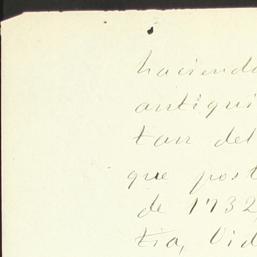 haciend
antiqui
tan del
que post
de 1732
tra, Vid